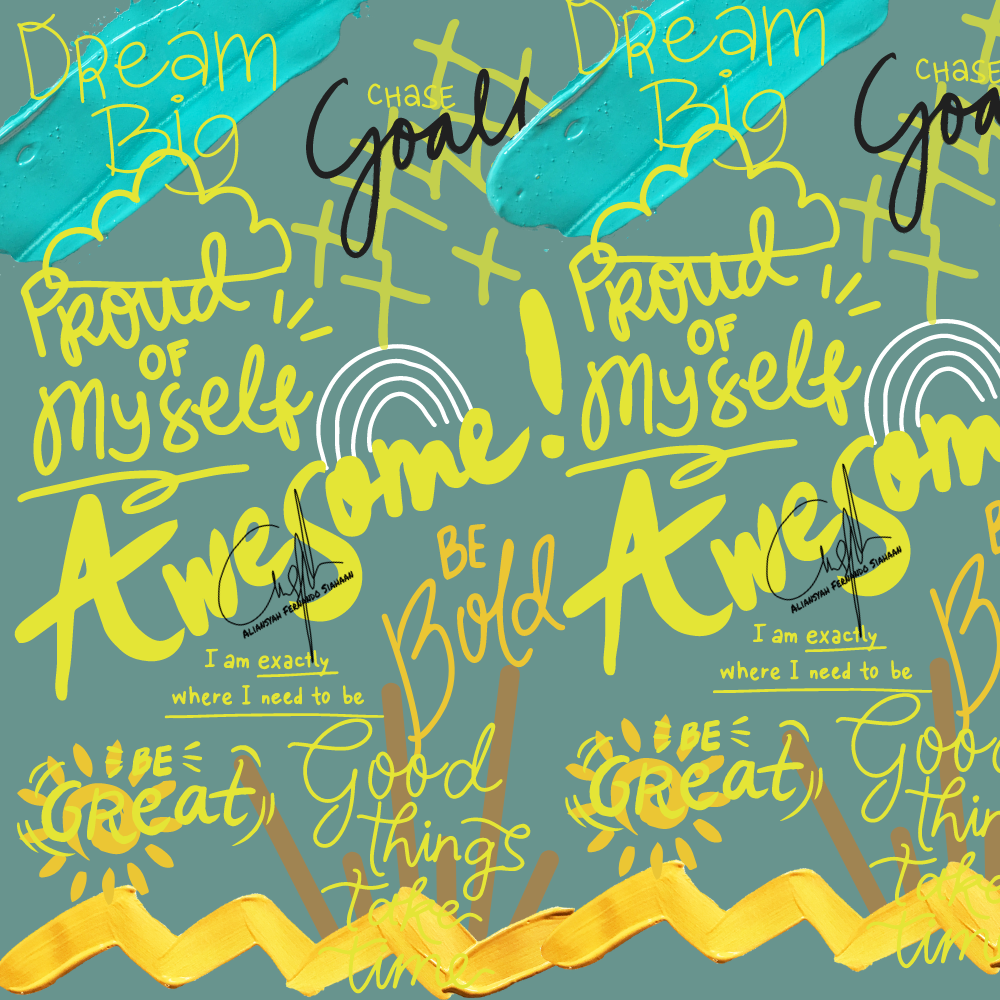 Dream
Big
CHASE
Goals
Proud
OF
Myself
Awesome!
ALIANSYAH FERNANDO SIAHAAN
BE
Bold
I am exactly
where I need to be
BE
Great
Good
things
take
time
Dream
Big
CHASE
Goa
Proud
OF
Myself
Awesom
ALIANSYAH FERNANDO SIAHAAN
B
B
I am exactly
where I need to be
BE
Great
Good
thin
take
tim